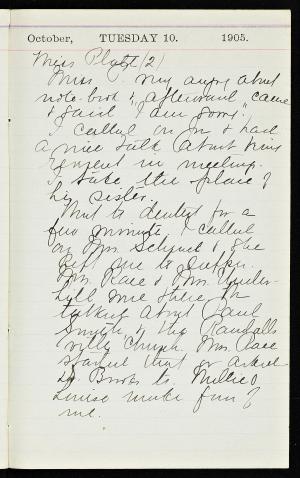 October, TUESDAY 10. 1905.
Miss Platt (2)
Miss P. very angry about
note-book & "afterward came
& said I am sorry."
I called on & had
a nice talk about being
in meeting.
I take the place of
his sister.
Went to dentist for a
few minutes. I called
on Mrs. & she
kept me to supper.
Mrs. Race & Mrs.
hill were there. In
talking about Paul
Smyth, & the Randalls
church Mrs. Race
stated that
Dr. Brooks to. Millie &
Louise make fun of
me.